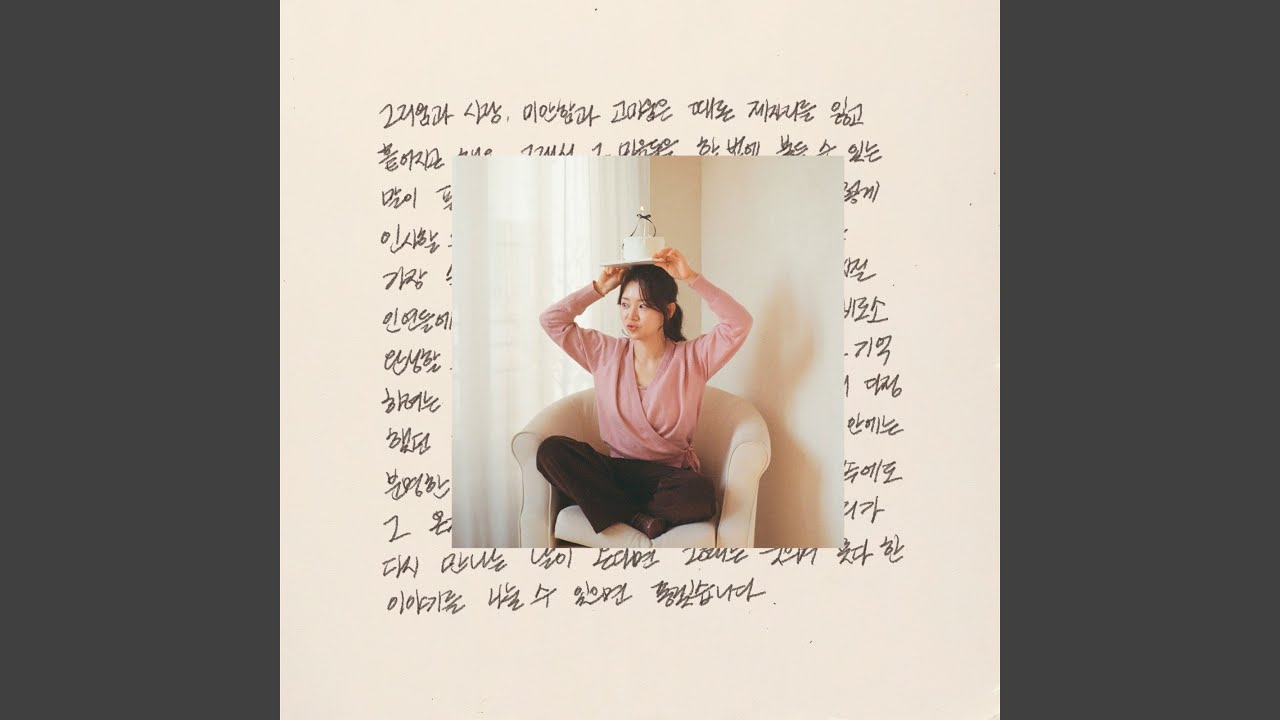 그리움과 사랑, 미안함과 고마움은 때로 제자리를 잃고
흩어지곤 해요. 그래서 그 마음들을 한 번에 붙들 수 있는
말이 렇게
인사할
가장 절
인연들에 비로소
완성할 기억
하려는 다정
했던 안에는
분명한 속에도
그 리가
다시 만나는 날이 온다면 그때는 웃으며 못다 한
이야기를 나눌 수 있으면 좋겠습니다.